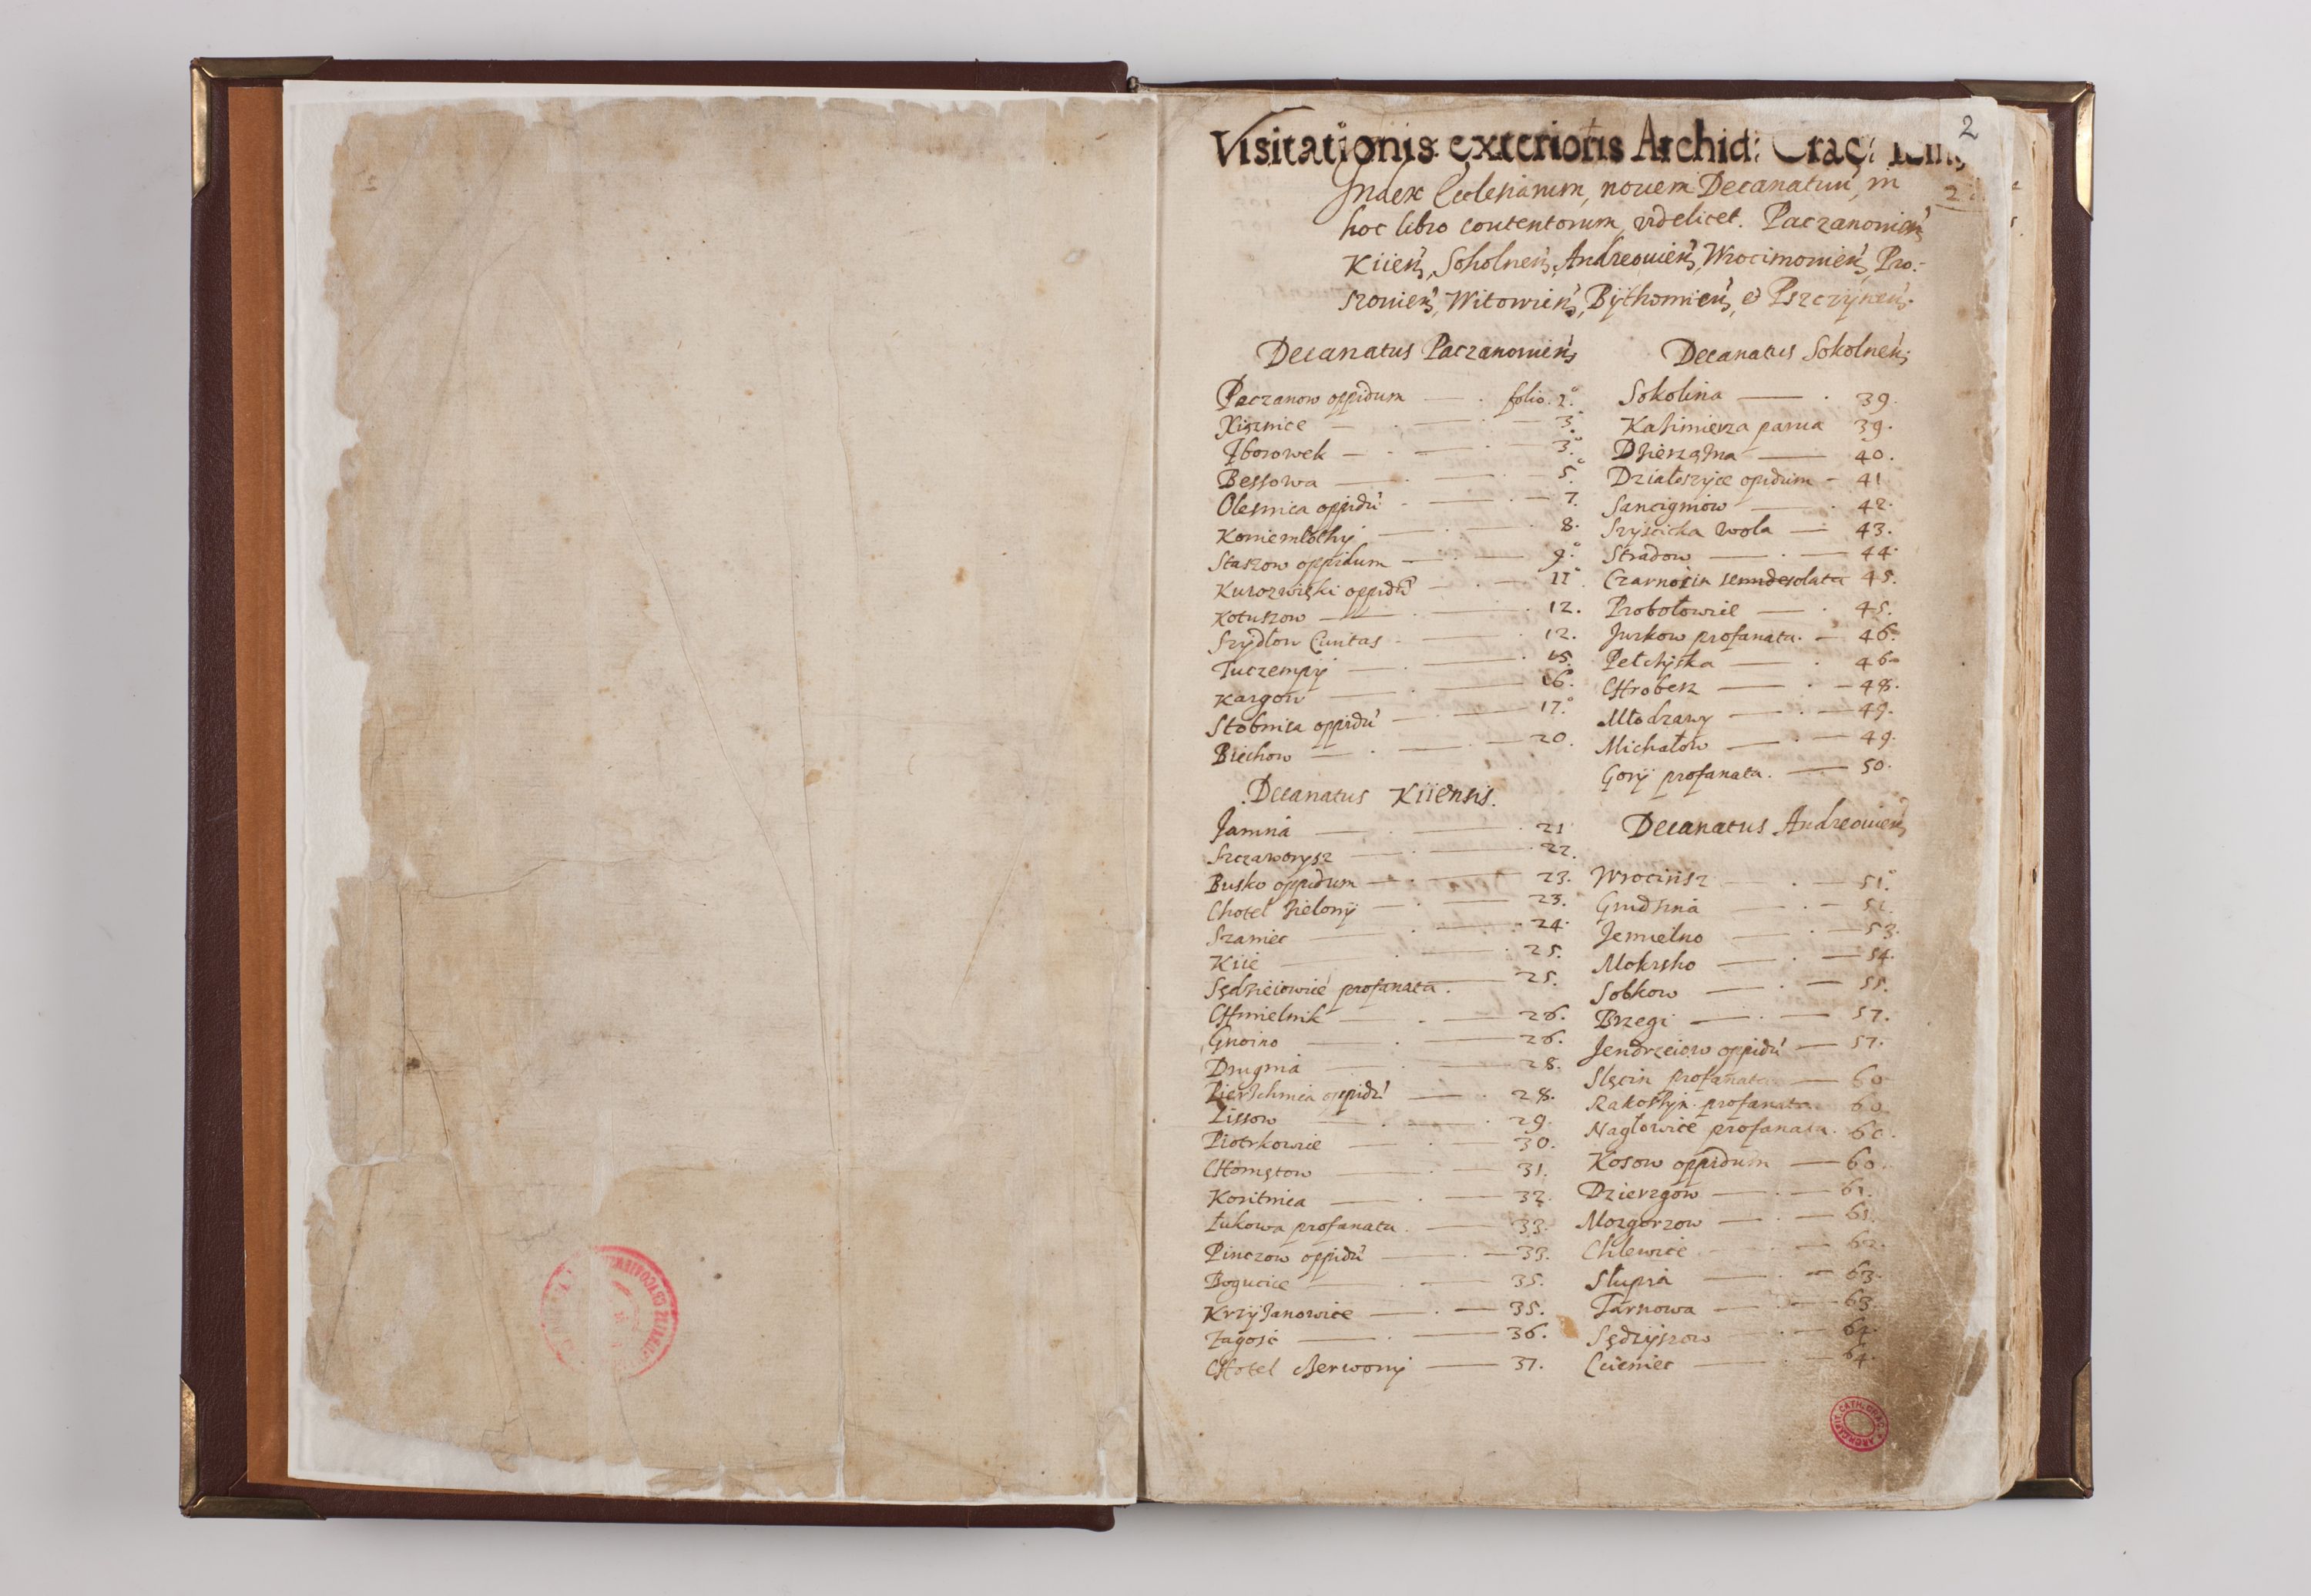 2
Visitationis exterioris Archid: Crac:
2
Index Ecclesiarum, nouem Decanatuũ, in
hoc libro contentorum, videlicet. Paczanouieñ,
Kiieñ, Sokolneñ, Andreouieñ, Wrocimouieñ, Pro-
szouieñ, Witouieñ, Bÿthomieñ, et Pszczÿneñ.
Decanatus Paczanouieñ
Paczanow oppidum — folio. 1.
Xiąznice — 3.
Zborowek — 3.
Bessowa — 5.
Olesnica oppidũ — 7.
Koniemłothÿ — 8.
Staszow oppidum — 9.
Kurozwięki oppidũ — 11.
Kotuszow — 12.
Szÿdłow Ciuitas — 12.
Tuczempÿ — 15.
Kargow — 16.
Stobnica oppidũ — 17.
Biechow — 20.
Decanatus Kiiensis.
Janina — 21
Szczaworysz — 22.
Busko oppidum — 23.
Chotel Zielonÿ — 23.
Szaniec — 24.
Kiie — 25.
Sędzieiowice profanata. — 25.
CHmielnik — 26.
Gnoino — 26.
Drugnia — 28.
Pierzchnica oppidũ — 28.
Lissow — 29.
Piotrkowice — 30.
CHomętow — 31.
Koritnica — 32.
Łukowa profanata. — 33.
Pinczow oppidũ — 33.
Bogucice — 35.
KrzÿZanowice — 35.
Zagosc — 36.
CHotel Czerwonÿ — 37.
Decanatus Sokolneñ
Sokolina — 39.
Kazimierza parua 39.
Dzierązna — 40.
Działoszÿce opidum — 41
Sancigniow — 42.
Szÿscicka Wola — 43.
Stradow — 44.
Czarnocin semidesolata 45.
Probołowice — 45.
Jurkow profanata. — 46.
Pełczÿska — 46
CHrobersz — 48.
Młodzawy — 49.
Michałow — 49.
Gorÿ profanata. — 50.
Decanatus Andreouieñ
Wrocirÿsz — 51.
Grudzina — 51.
Jemielno — 53.
Mokrsko — 54.
Sobkow — 55.
Brzegi — 57.
Jendrzeiow oppidũ — 57.
Slęcin profanata — 60
Rakoszÿn profanata 60.
Nagłowice profanata. 60.
Kosow oppidum — 60.
Dzierzgow — 61.
Mozgorzow — 61.
Chlewice — 62.
Słupia — 63.
Tarnowa — 63.
Sędzÿszow — 64.
Cierniec — 64.